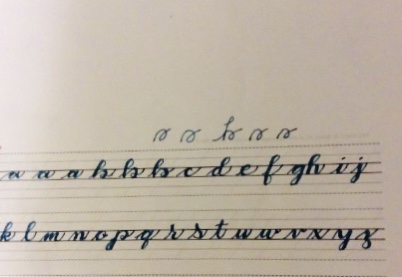 a a a b b b c d e f g h i j
k l m n o p q r s t u w v x y z